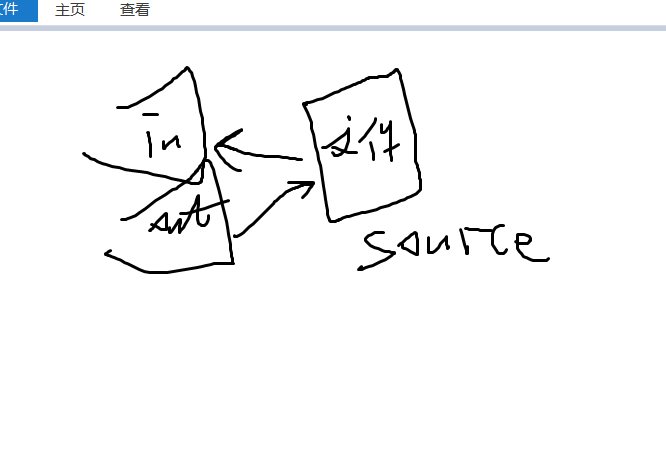 文件 主页 查看
in
out
source